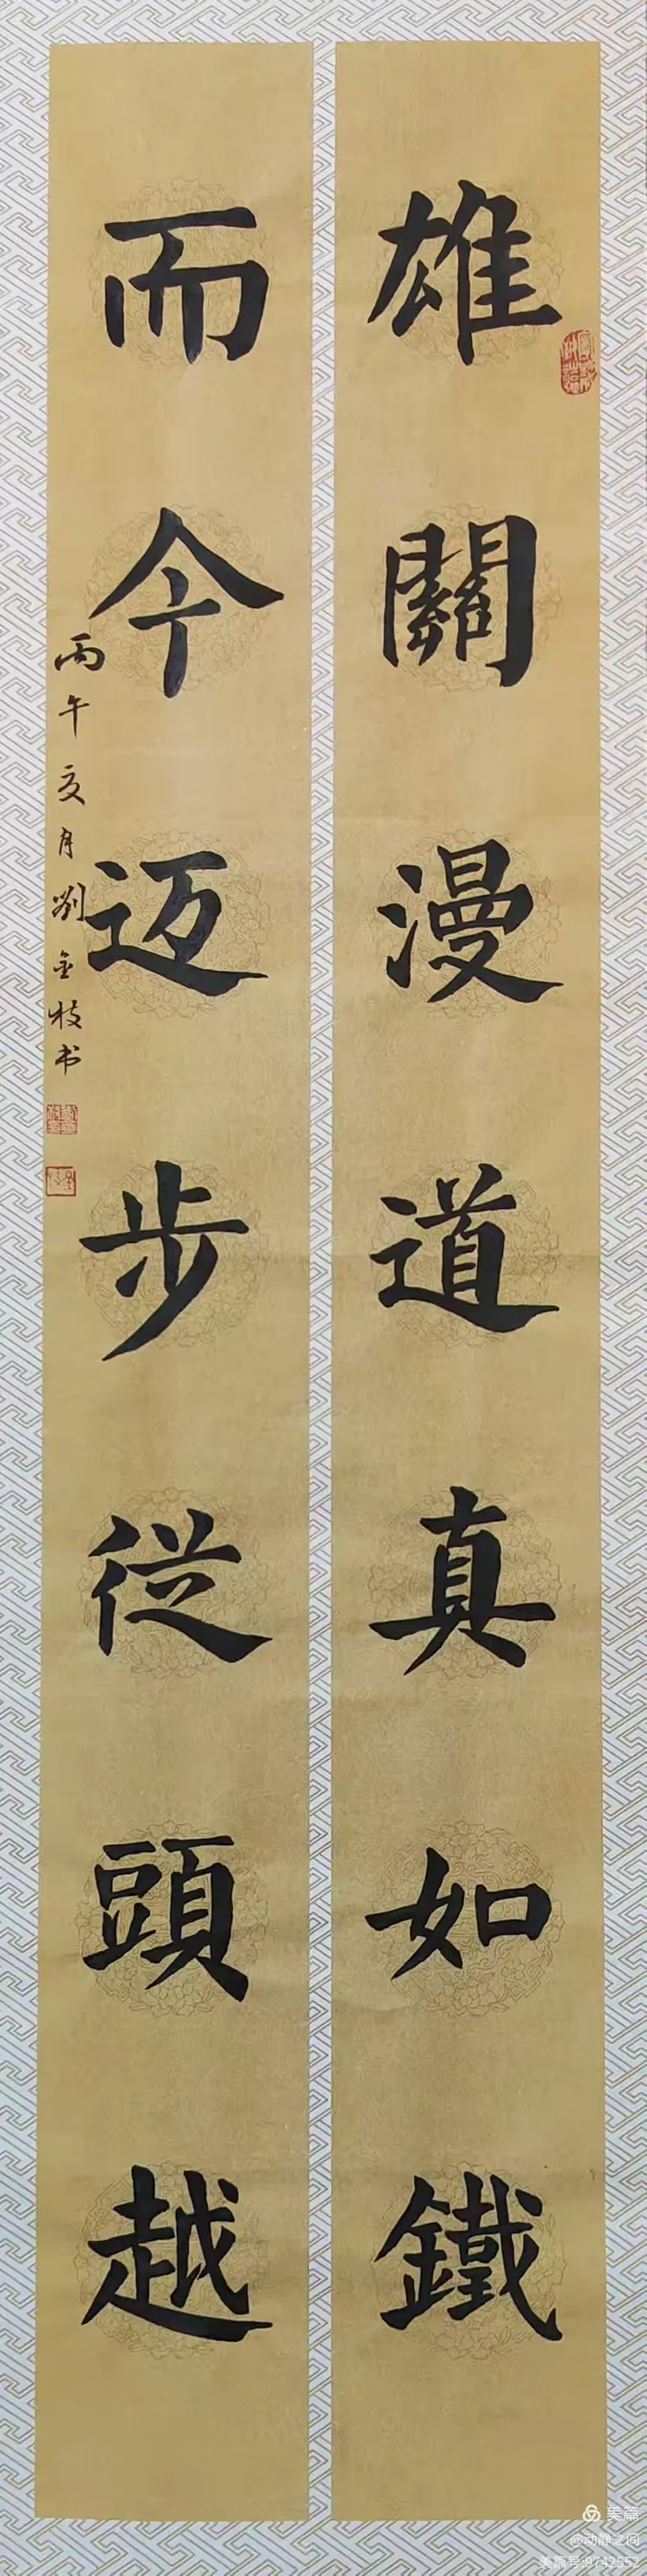 雄關漫道真如鐵
而今迈步從頭越
丙午亥月劉金枝书
美篇
@动静之间
美篇号:9742552